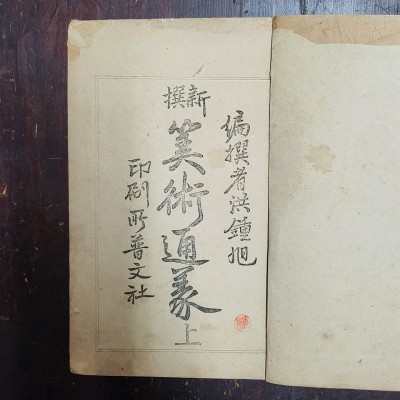 編撰者洪鍾旭
新撰
筭術通義上
印刷所普文社